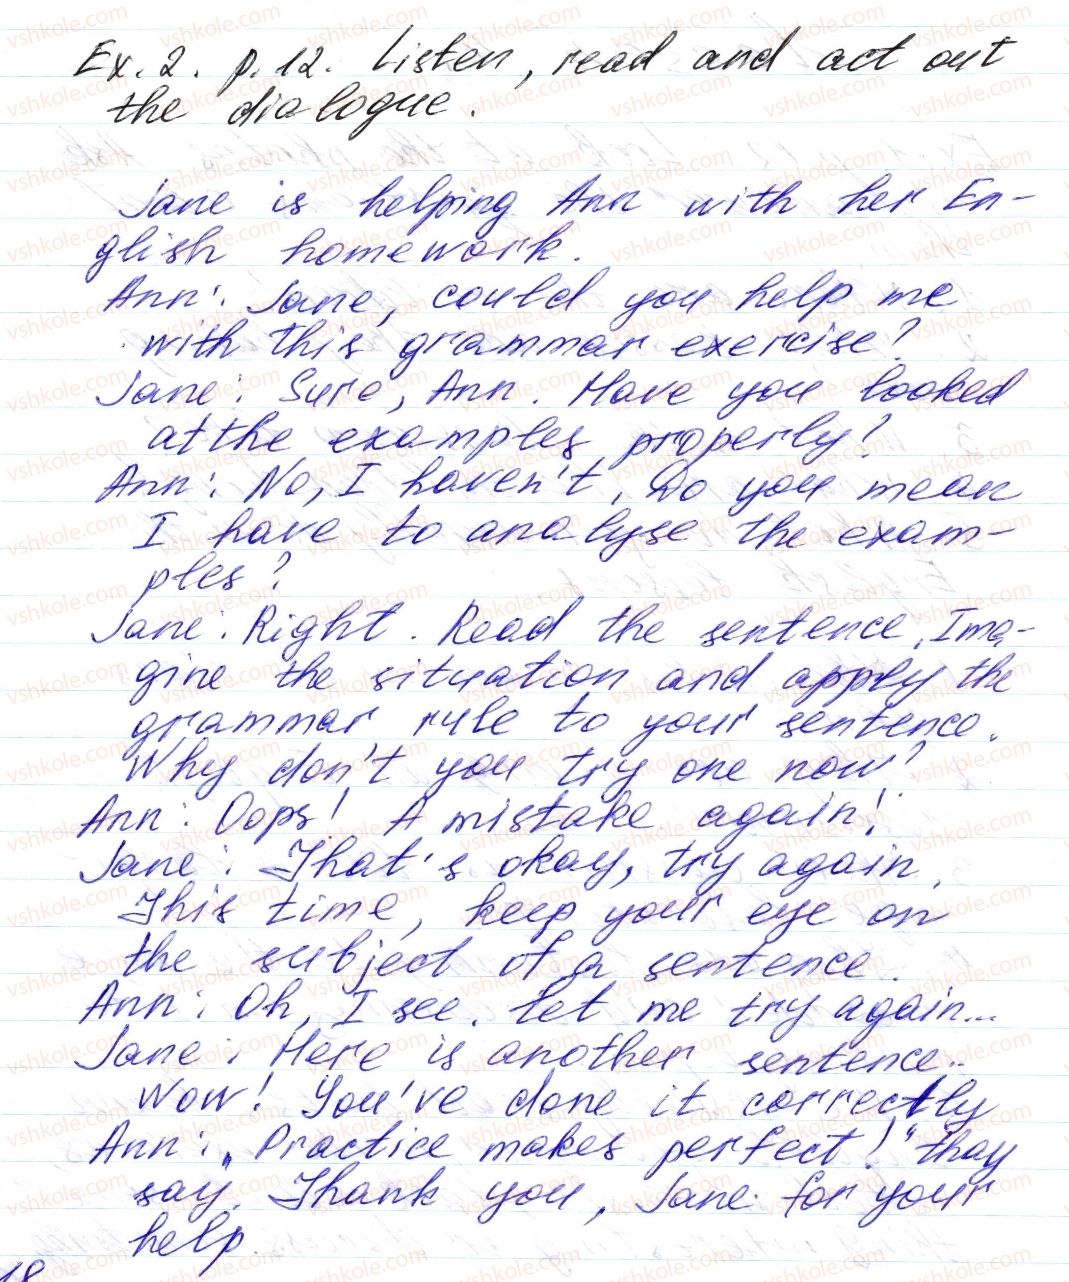 Ex. 2. p. 12. Listen, read and act out
the dialogue.
Jane is helping Ann with her En-
glish homework.
Ann: Jane, could you help me
with this grammar exercise?
Jane: Sure, Ann. Have you looked
at the examples properly?
Ann: No, I haven't. Do you mean
I have to analyse the exam-
ples?
Jane: Right. Read the sentence. Ima-
gine the situation and apply the
grammar rule to your sentence.
Why don't you try one now?
Ann: Oops! A mistake again!
Jane: That's okay, try again.
This time, keep your eye on
the subject of a sentence.
Ann: Oh, I see. Let me try again...
Jane: Here is another sentence..
Wow! You've done it correctly
Ann: „Practice makes perfect!" thay
say. Thank you, Jane for your
help.
18